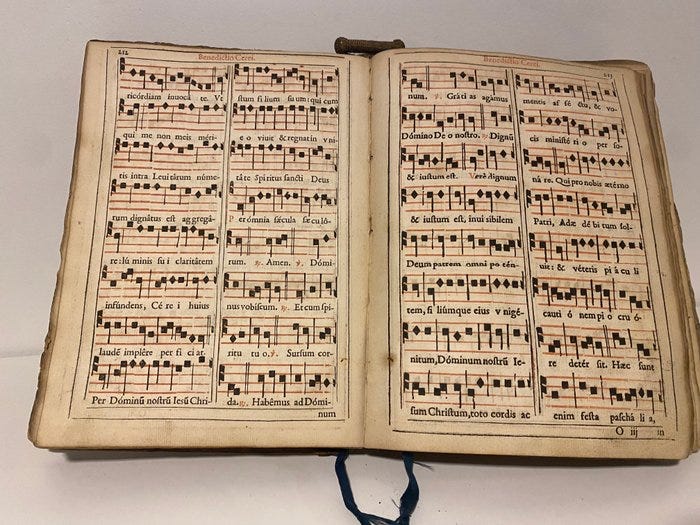 212
Benedictio Cerei.
ricórdiam inuoca te. Vt
qui me non meis méri-
tis intra Leuitárum núme-
rum dignátus est aggregá-
re: lú minis su i claritátem
infúndens, Cé re i huius
laudē implére per fi ci at.
Per Dóminū nostrū Iesū Chri-
stum filium suum: qui cum
e o viuit & regnat in vni-
táte Spiritus sancti Deus
Per ómnia sǽcula sæculó-
rum. ℟. Amen. ℣. Dómi-
nus vobíscum. ℟. Et cum spi-
ritu tuo. ℣. Sursum cor-
da. ℟. Habémus ad Dómi-
num
Benedictio Cerei.
213
num. ℣. Gráti as agámus
Dómino De o nostro. ℟. Dignū
& iustum est. Verè dignum
& iustum est, inui síbilem
Deum patrem omni po tén-
tem, fi liúmque eius v nigé-
nitum, Dóminum nostrū Ie-
sum Christum, toto cordis ac
mentis af fé ctu, & vo-
cis ministé ri o per so-
ná re. Qui pro nobis ætérno
Patri, Adæ dé bi tum sol-
uit: & véteris pi á cu li
cauti ó nem pi o cru ó-
re detér sit. Hæc sunt
enim festa paschá li a,
O iij
in